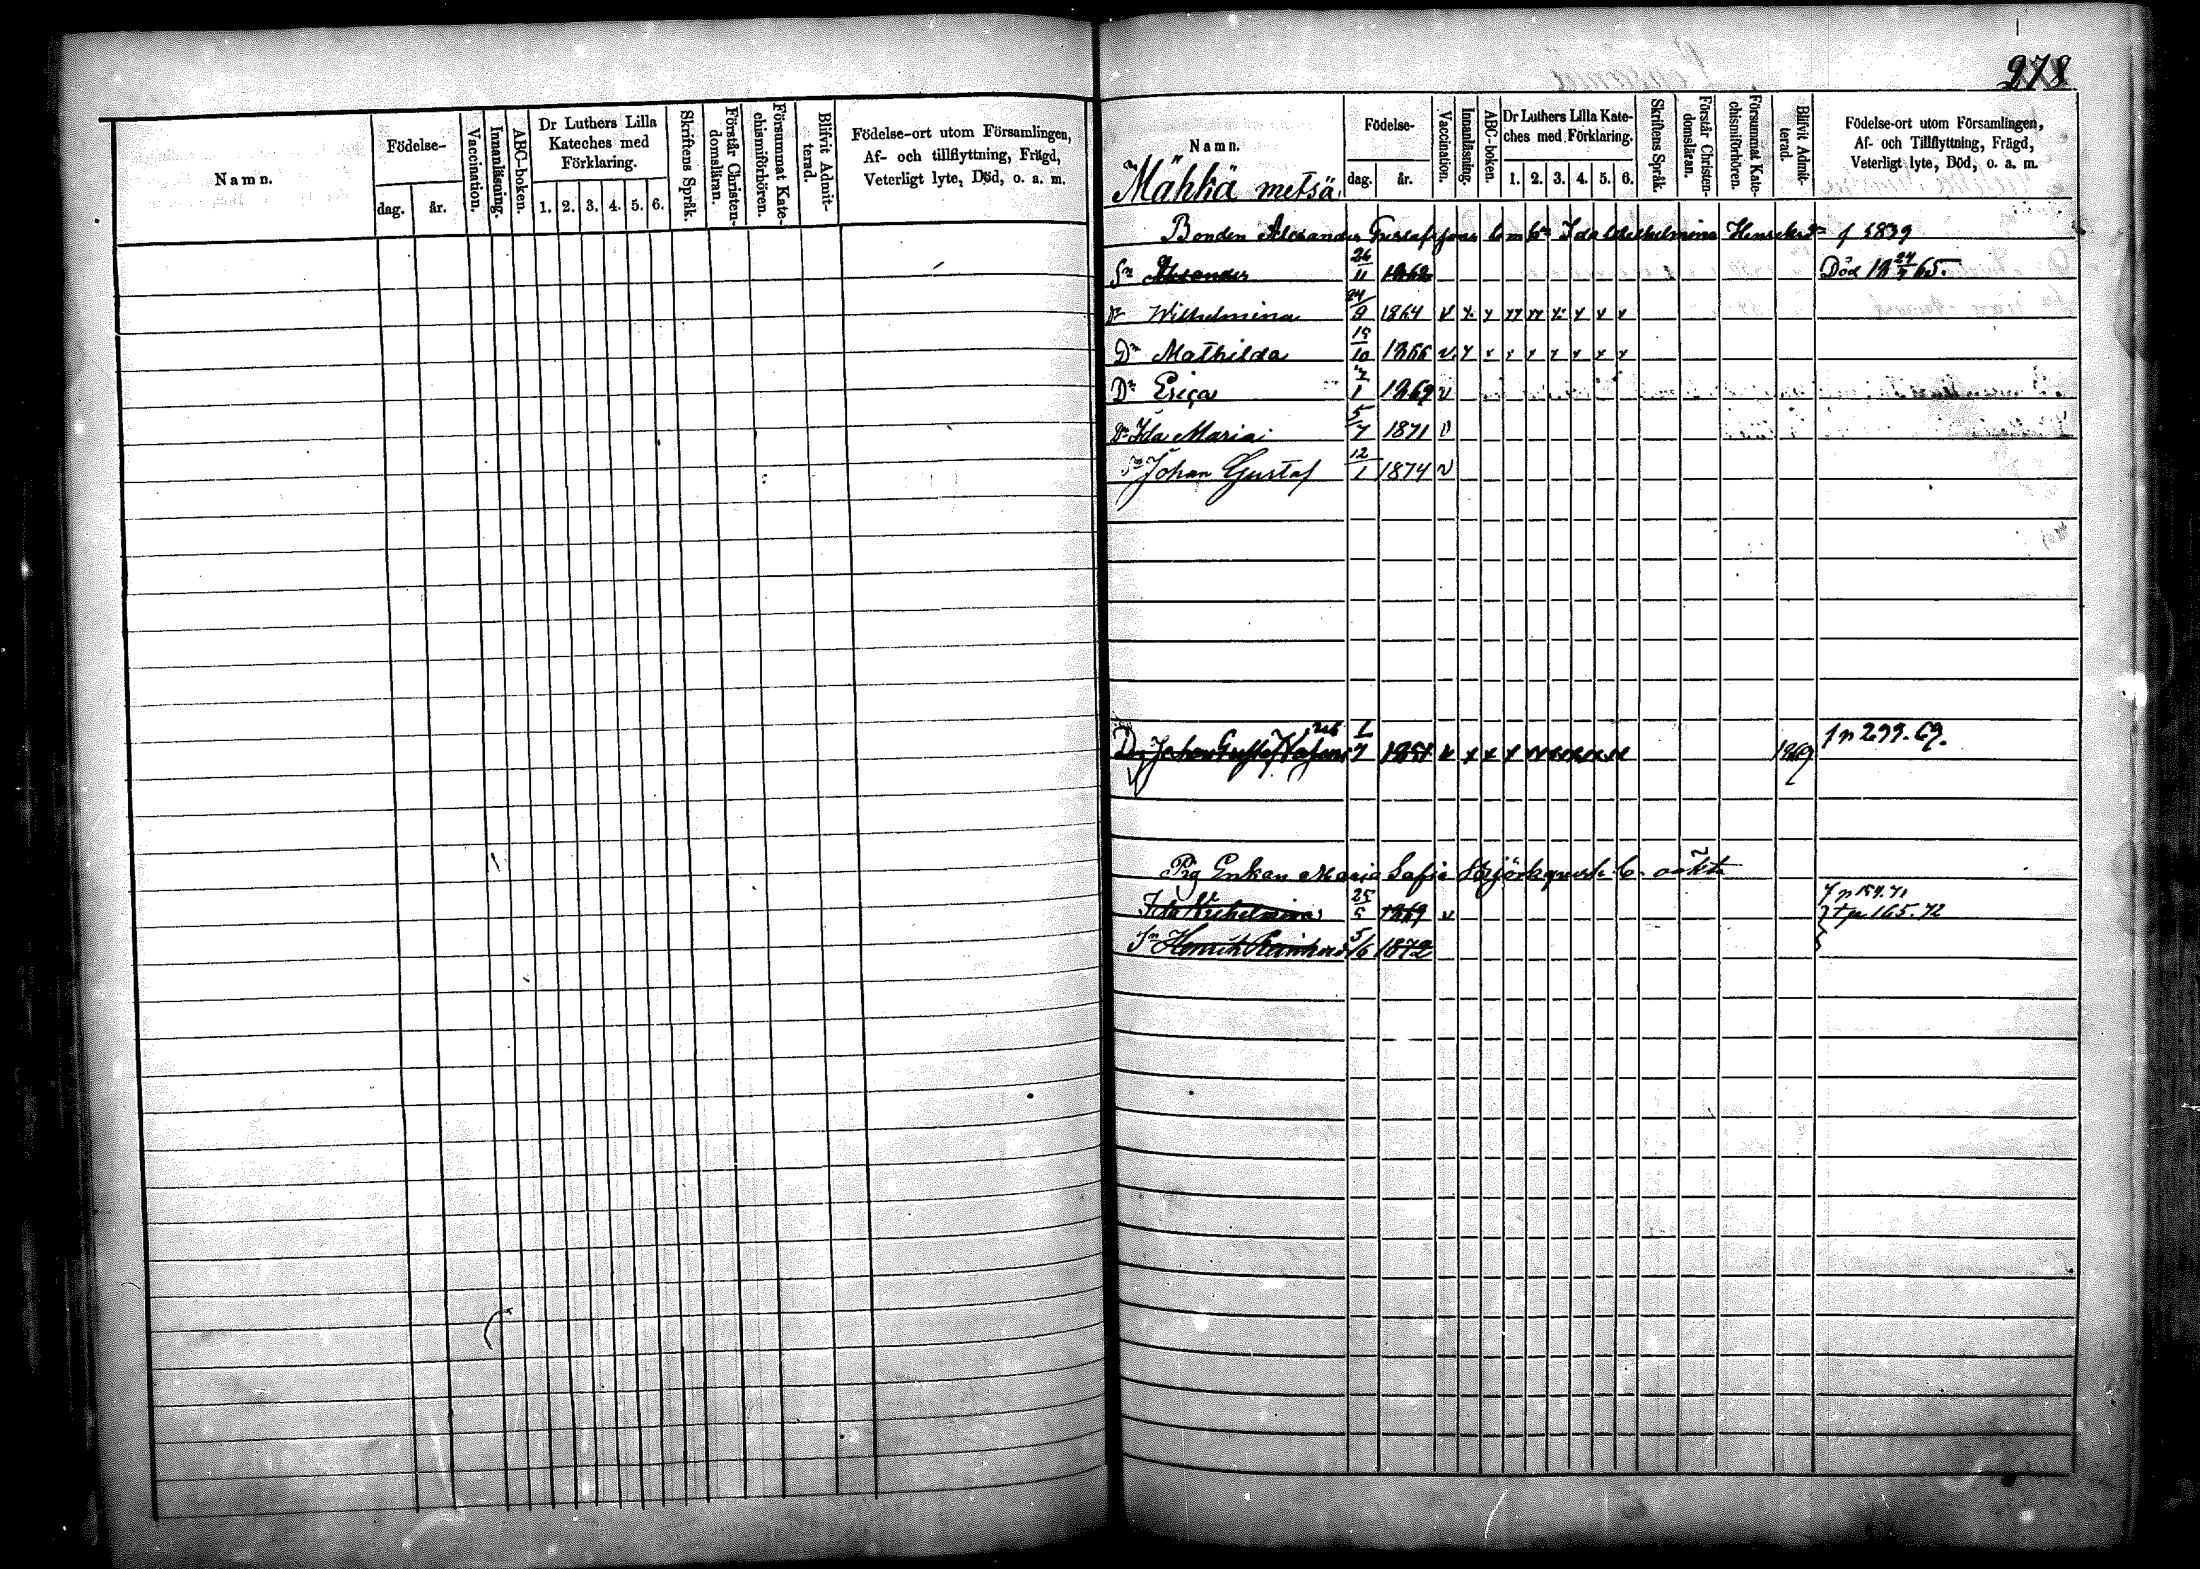 Namn.
Födelse-
dag.
år.
Vaccination.
Innanläsning.
ABC-boken.
Dr Luthers Lilla
Kateches med
Förklaring.
1. 2. 3. 4. 5. 6.
Skriftens Språk.
Förstår Christen-
domsläran.
Försummat Kate-
chismiförhören.
Blifvit Admit-
terad.
Födelse-ort utom Församlingen,
Af- och tillflyttning, Frägd,
Veterligt lyte, Död, o. a. m.
278
Namn.
Mähkä metsä
Födelse-
dag.
år.
Vaccination.
Innanläsning.
ABC-boken.
Dr Luthers Lilla Kate-
ches med Förklaring.
1. 2. 3. 4. 5. 6.
Skriftens Språk.
Förstår Christen-
domsläran.
Försummat Kate-
chismiförhören.
Blifvit Admit-
terad.
Födelse-ort utom Församlingen,
Af- och Tillflyttning, Frägd,
Veterligt lyte, Död, o. a. m.
Bonden Alexander Gustafsson Ida Wilhelmina f 1839
Sn Alexander 26/11 1862 Död 18 24/7 65.
Dr Wilhelmina 24/9 1864 v x x xx xx x x x x
Dr Mathilda 15/10 1866 v x x x x x x x x
Dr Erica 2/1 1869 v
Dr Ida Maria 5/7 1871 v
Sn Johan Gustaf 12/1 1874 v
Johan Gustaf 1/7 1851 1869 f p 299. 69.
Enkan Maria Sofia Björkqvist
Ida Wilhelmina 25/5 1869 v f p 154. 71
t p 165. 72
Sn Henrik Reinhard 5/6 1872